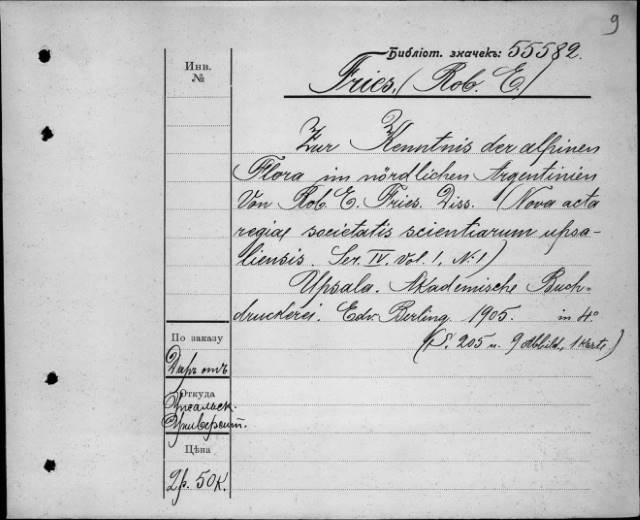 9
Библіот. значекъ: 55582.
Инв.
№
Fries, (Rob. E.)
Zur Kenntnis der alpinen
Flora im nördlichen Argentinien
Von Rob. E. Fries. Diss. (Nova acta
regiae societatis scientiarum upsa-
liensis. Ser. IV. Vol. 1, N. 1)
Upsala. Akademische Buch-
druckerei. Edv. Berling. 1905. in 4°
(S. 205 u. 9 Abbild., 1 Karte.)
По заказу
Даръ отъ
Откуда
Упсальск.
Университ.
Цѣна
2р. 50к.